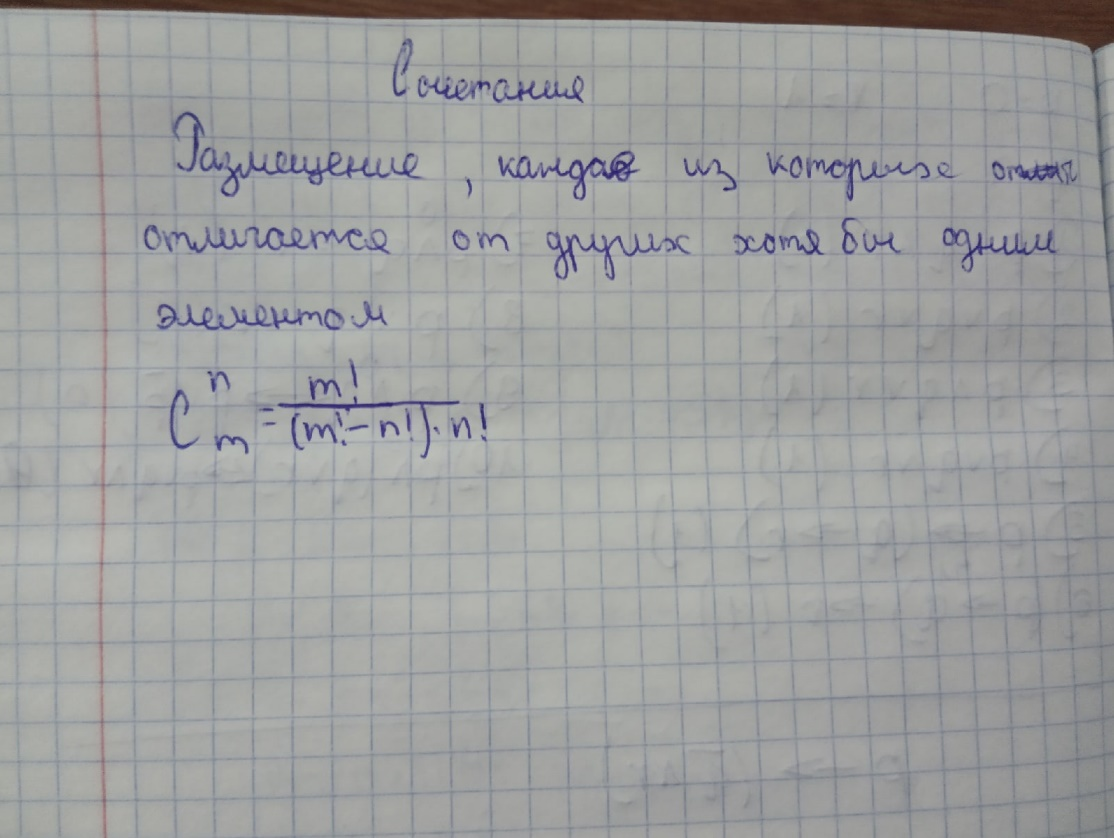 Сочетания
Размещение, каждое из которых
отличается от других хотя бы одним
элементом
C_m^n = m! / ((m! - n!) · n!)